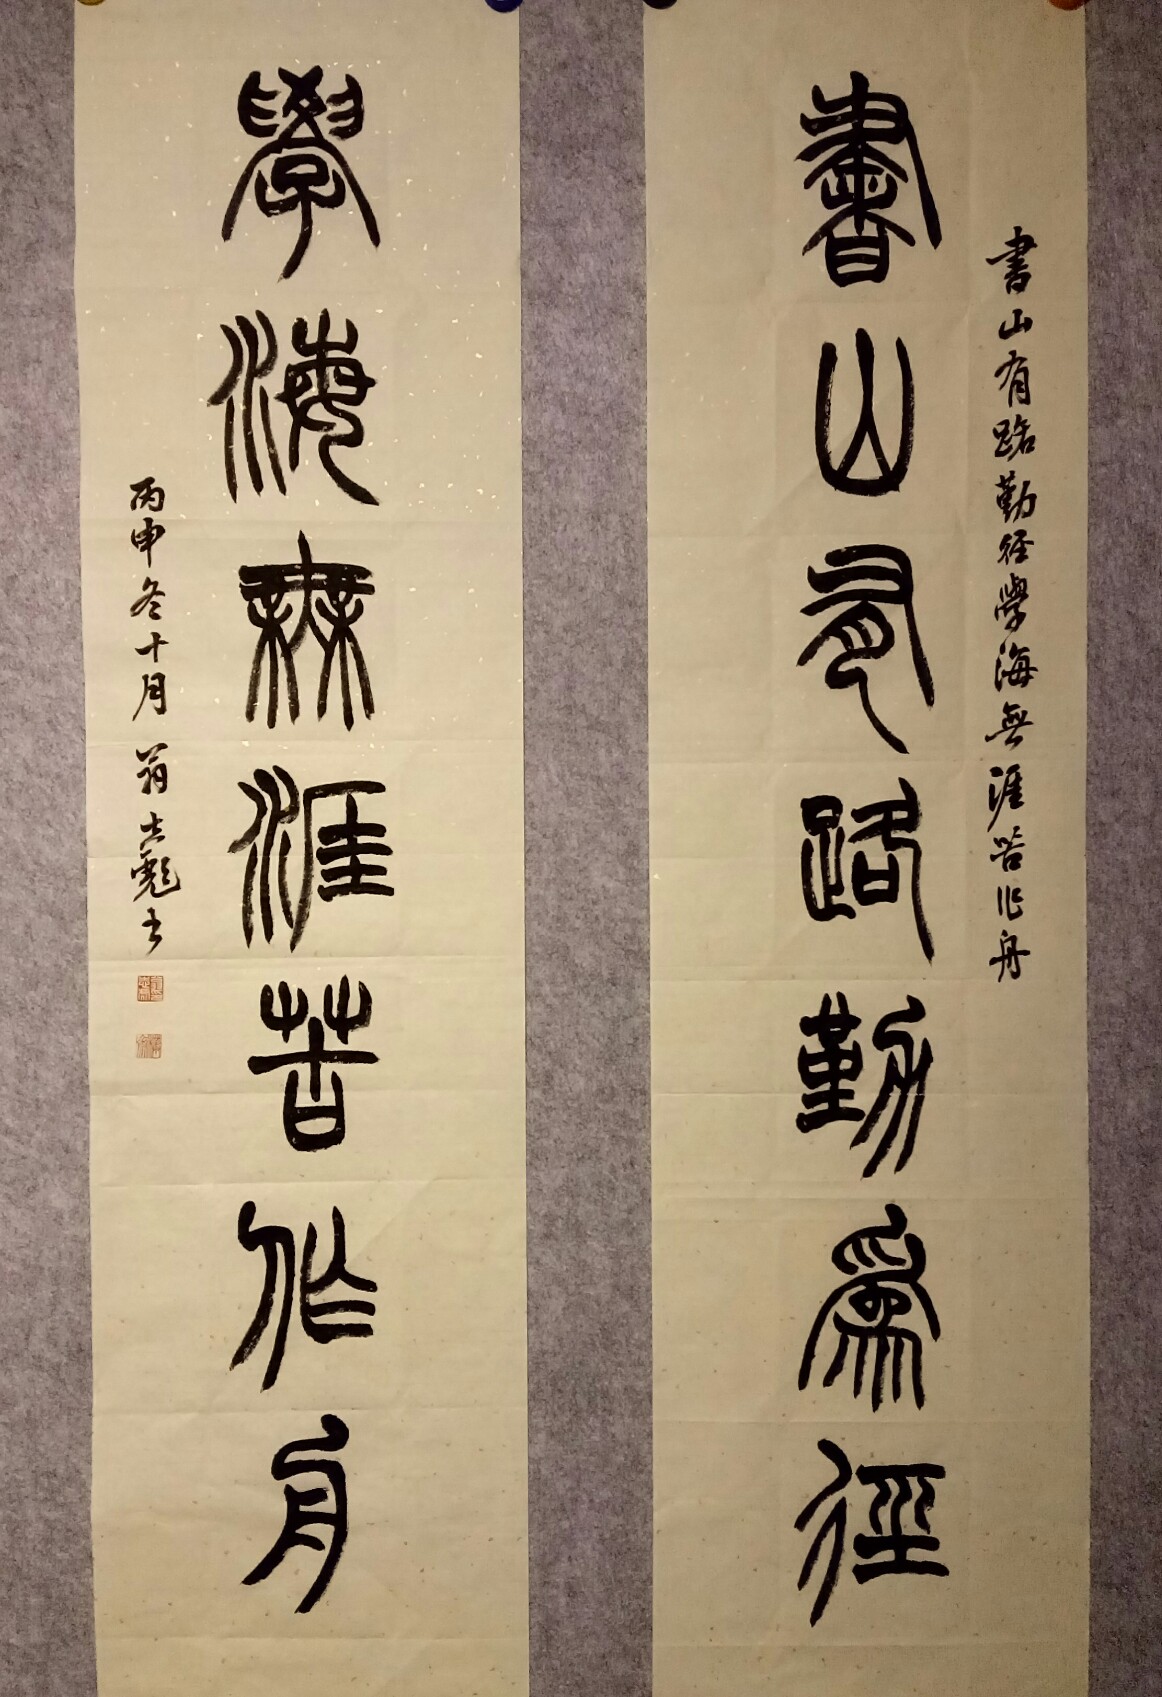 書山有路勤為徑
書山有路勤徑學海無涯苦作舟
學海無涯苦作舟
丙申冬十月 翁士彪書